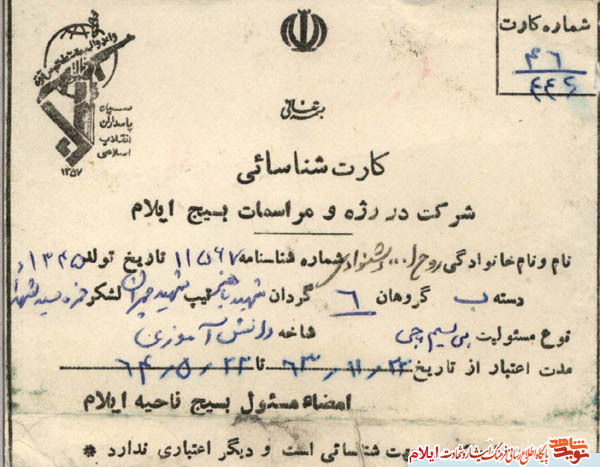 شماره کارت
۴۶
۴۴۶
سپاه
پاسداران
انقلاب
اسلامی
۱۳۵۷
بسمه تعالی
کارت شناسائی
شرکت در رژه و مراسمات بسیج ایلام
نام و نام خانوادگی روح ا... شماره شناسنامه ۱۱۵۶۷ تاریخ تولد ۱۳۴۵
دسته ب گروهان ۶ گردان شهید باهنر تیپ شهید چمران لشکر حمزه سید الشهدا
نوع مسئولیت بی سیم چی شاخه دانش آموزی
مدت اعتبار از تاریخ ۶۳/۱۱/۲۲ تا ۶۴/۵/۲۲
امضاء مسئول بسیج ناحیه ایلام
جهت شناسائی است و دیگر اعتباری ندارد *
نوید شاهد
پایگاه اطلاع رسانی فرهنگ ایثار و شهادت ایلام